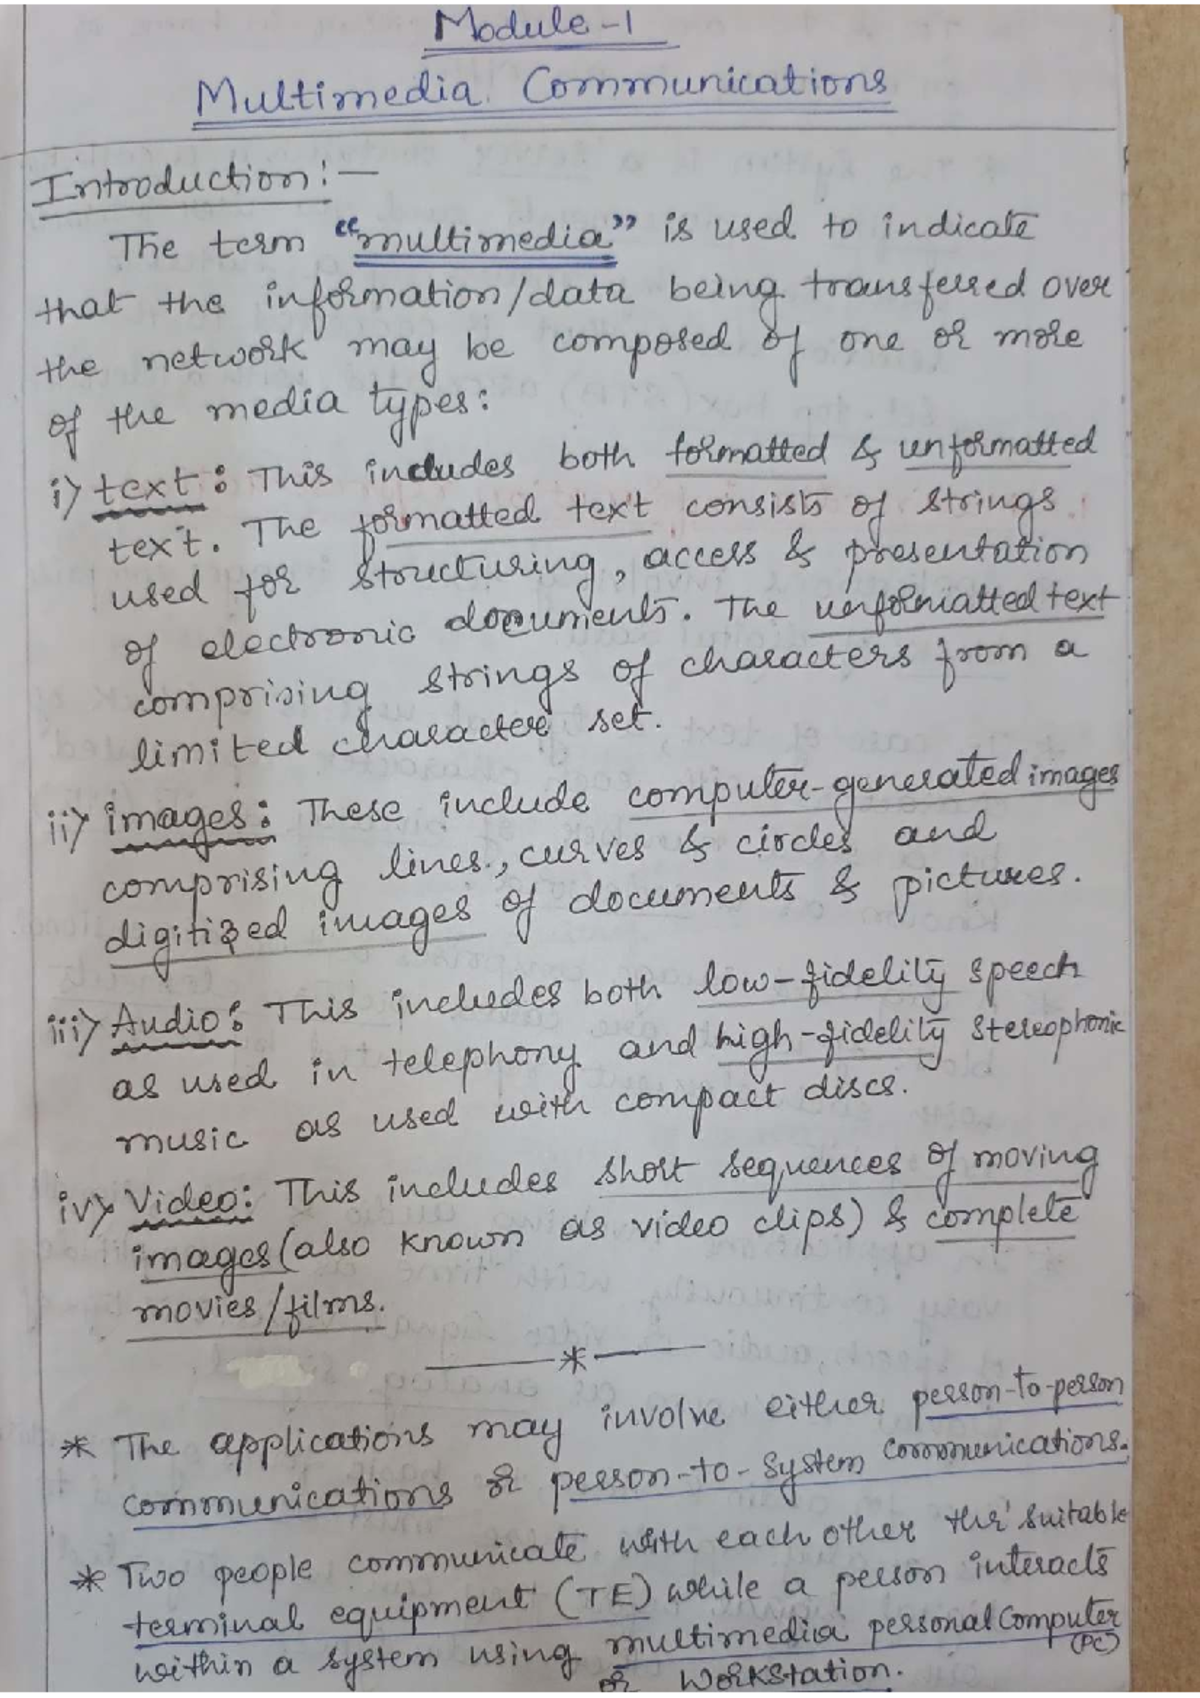 Module-1
Multimedia Communications
Introduction:—
The term "multimedia" is used to indicate
that the information/data being transferred over
the network may be composed of one or more
of the media types:
i) text: This includes both formatted & unformatted
text. The formatted text consists of strings
used for structuring, access & presentation
of electronic documents. The unformatted text
comprising strings of characters from a
limited character set.
ii) images: These include computer-generated images
comprising lines, curves & circles and
digitized images of documents & pictures.
iii) Audio: This includes both low-fidelity speech
as used in telephony and high-fidelity stereophonic
music as used with compact discs.
iv) Video: This includes short sequences of moving
images (also known as video clips) & complete
movies/films.
—*—
* The applications may involve either person-to-person
communications or person-to-system communications.
* Two people communicate with each other thr' suitable
terminal equipment (TE) while a person interacts
within a system using multimedia personal Computer
(PC)
or workstation.